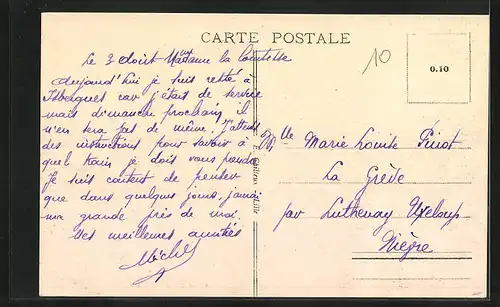 CARTE POSTALE
10
0.10
Le 3 Août Madame la Comtesse
Aujourd'hui je suis resté à
Isbergues car j'étais de service
mais dimanche prochain il
n'en sera pas de même. J'attends
des instructions pour savoir à
quel train je dois vous prendre
Je suis content de penser
que dans quelques jours, j'aurai
ma grande près de moi.
Mes meilleures amitiés
Michel
Mlle Marie Louise Pinot
La Grède
par Luthenay Uxeloup
Nièvre